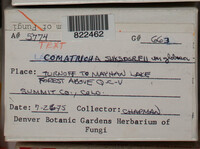 m of Fungi
A# 5774
822462
G# 663
TEXT
COMATRICHA SUKSDORFII
Place: TURNOFF TO MAYHAN LAKE
FOREST ABOVE Q-C-U
SUMMIT CO., COLO.
Date: 7-26-75 Collector: CHAPMAN
Denver Botanic Gardens Herbarium of
Fungi